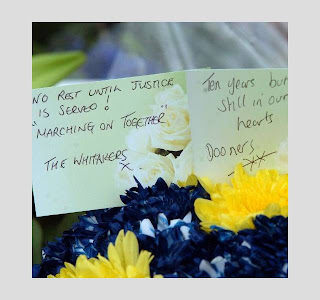 NO REST UNTIL JUSTICE
IS SERVED!
MARCHING ON TOGETHER
THE WHITAKERS
x
Ten years but
still in our
hearts
Dooners